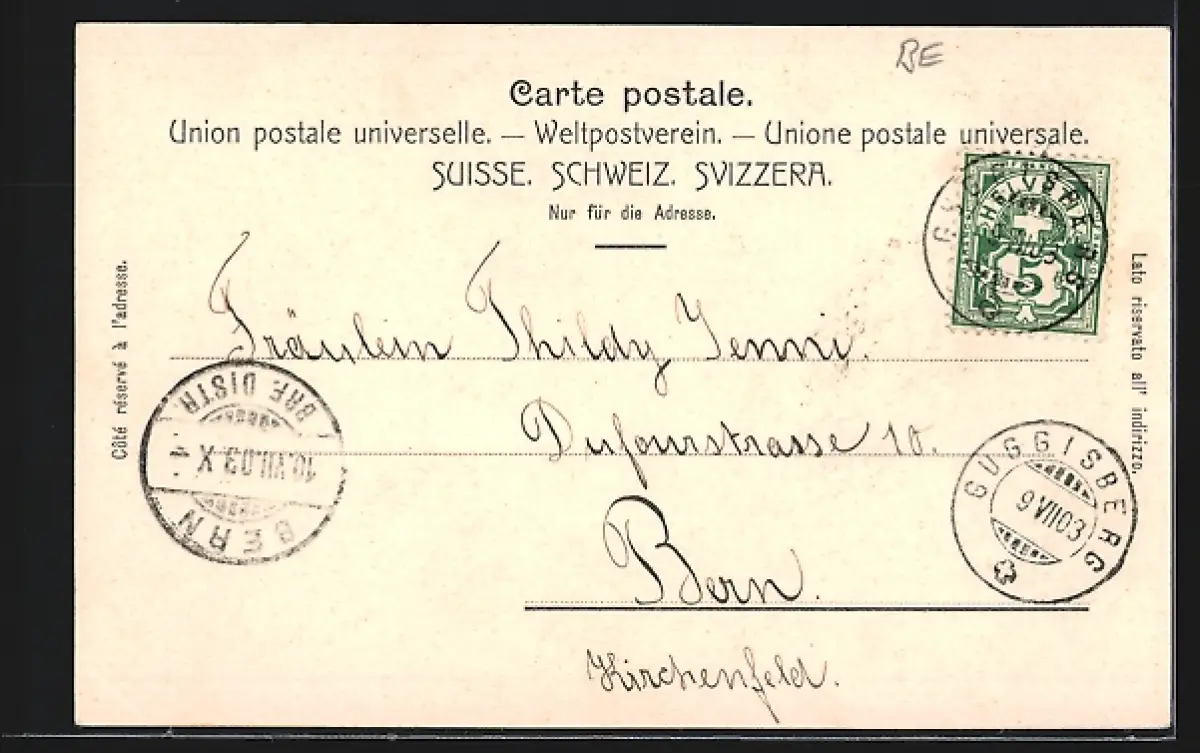 BE
Carte postale.
Union postale universelle. — Weltpostverein. — Unione postale universale.
SUISSE. SCHWEIZ. SVIZZERA.
Nur für die Adresse.
Côté réservé à l'adresse.
Lato riservato all' indirizzo.
HELVETIA
5
Fräulein Thildy Jenni.
Dufourstrasse 10.
Bern.
Kirchenfeld.
BRF. DISTR.
10.VII.03.X
BERN
GUGGISBERG
9 VII 03